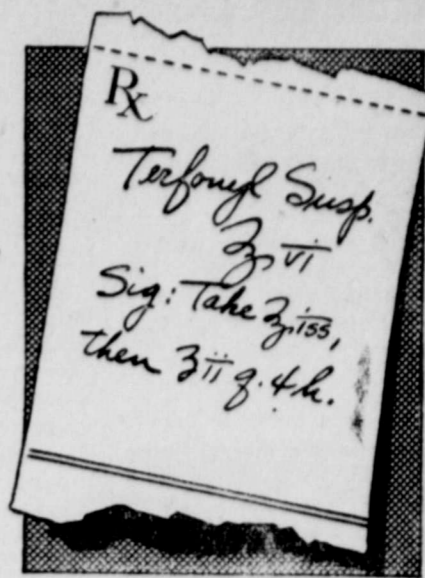 Rx
Terfonyl Susp.
℥ vi
Sig: Take ℥ iss,
then ʒ ii q. 4 h.